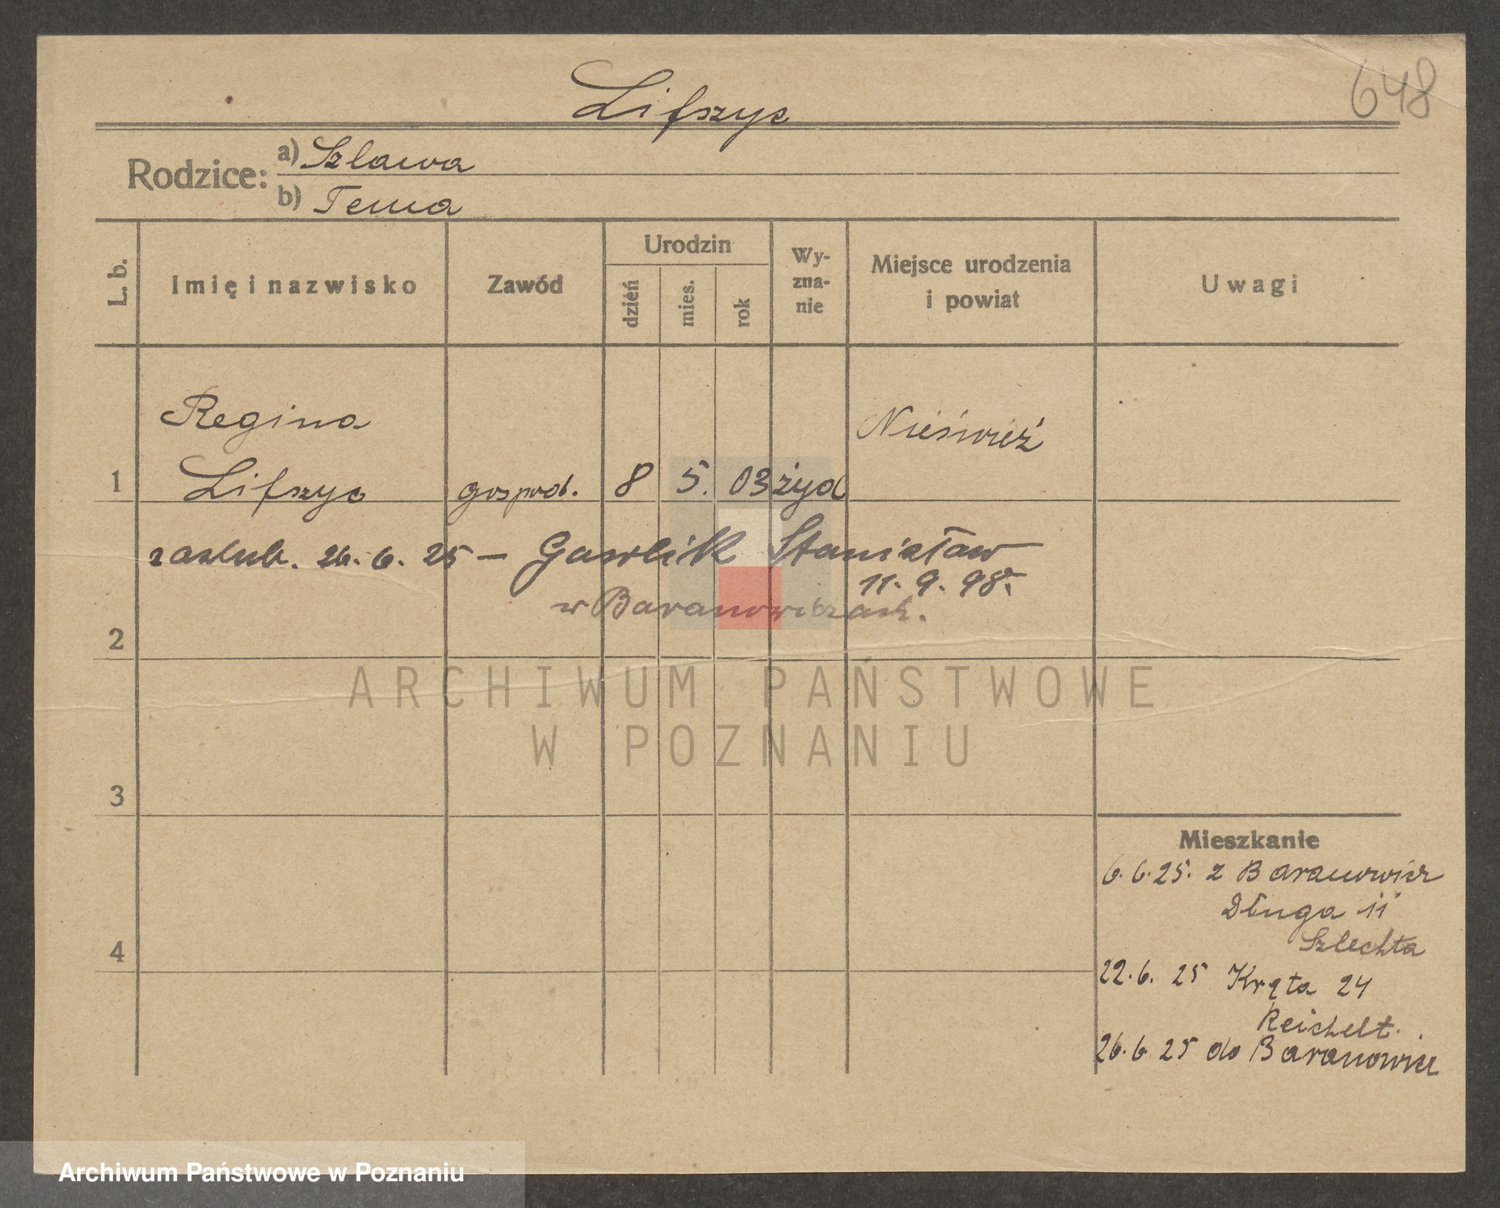 648
Lifszyc
Rodzice: a) Szlawa
b) Tema
L. b. Imię i nazwisko Zawód Urodzin dzień mies. rok Wy-zna-nie Miejsce urodzenia i powiat Uwagi
Regina Nieśwież
1 Lifszyc gospod. 8 5. 03 żyd
zaślub. 26. 6. 25 — Gawlik Stanisław
11. 9. 98.
w Baranowiczach.
2
ARCHIWUM PAŃSTWOWE
W POZNANIU
3
Mieszkanie
6. 6. 25. z Baranowicz
Długa 11
Szlechta
4
22. 6. 25 Kręta 24
Reichelt.
26. 6. 25 do Baranowicz
Archiwum Państwowe w Poznaniu